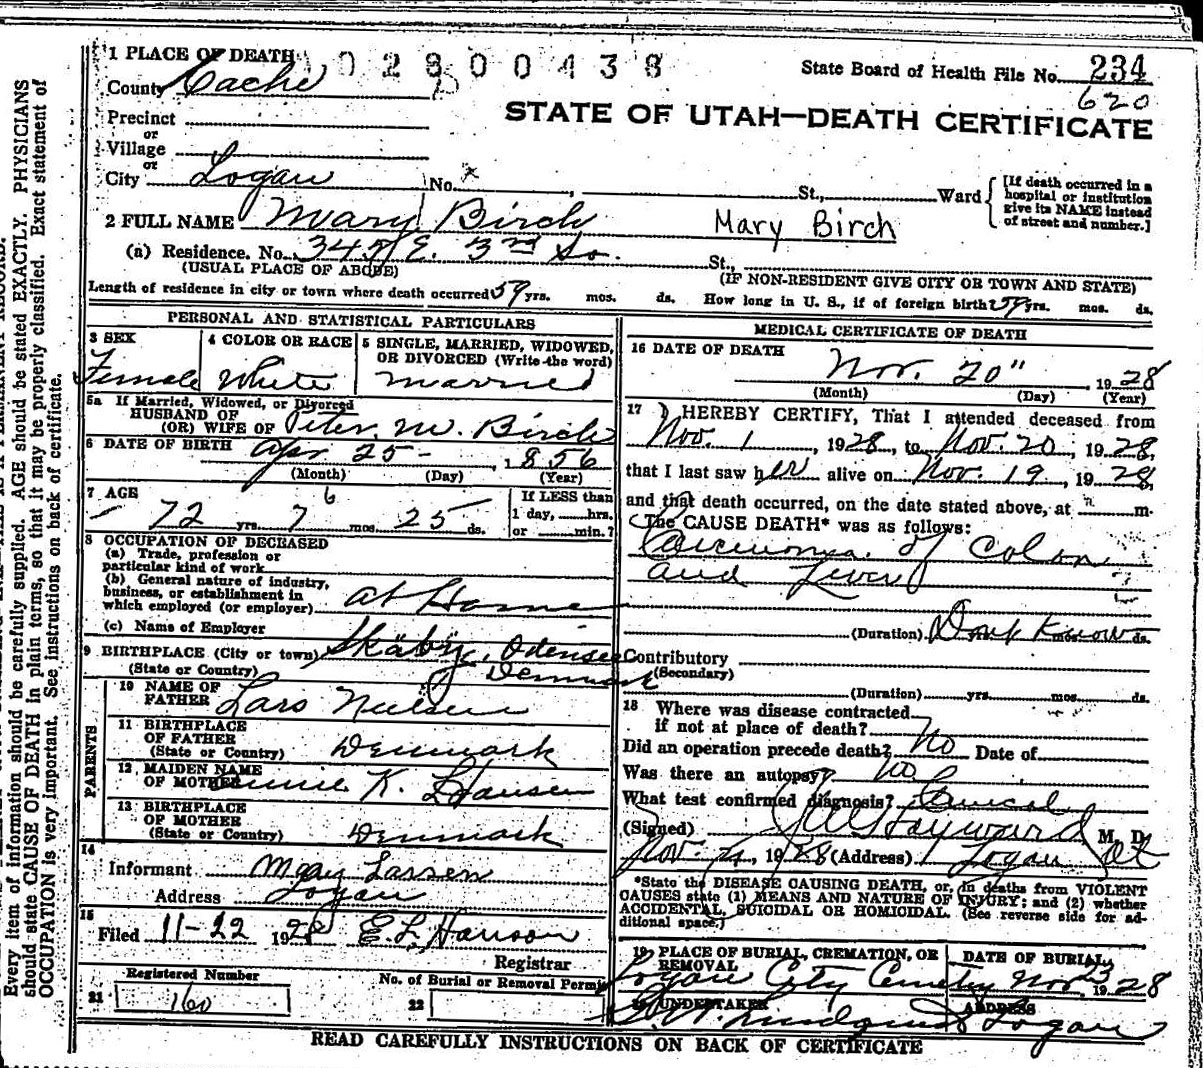 1 PLACE OF DEATH
02800438
State Board of Health File No. 234
620
County Cache
STATE OF UTAH—DEATH CERTIFICATE
Precinct
or
Village
or
City Logan No. St., Ward
[If death occurred in a hospital or institution give its NAME instead of street and number.]
2 FULL NAME Mary Birch Mary Birch
(a) Residence. No. 345 E. 3rd So. St.,
(USUAL PLACE OF ABODE) (IF NON-RESIDENT GIVE CITY OR TOWN AND STATE)
Length of residence in city or town where death occurred 59 yrs. mos. ds. How long in U. S., if of foreign birth? 59 yrs. mos. ds.
PERSONAL AND STATISTICAL PARTICULARS
3 SEX
Female
4 COLOR OR RACE
White
5 SINGLE, MARRIED, WIDOWED, OR DIVORCED (Write the word)
Married
5a If Married, Widowed, or Divorced
HUSBAND OF
(OR) WIFE OF Peter M. Birch
6 DATE OF BIRTH Apr 25 - , 1856
(Month) (Day) (Year)
7 AGE
6
72 yrs. 7 mos. 25 ds.
If LESS than
1 day, hrs.
or min.?
8 OCCUPATION OF DECEASED
(a) Trade, profession or
particular kind of work
(b) General nature of industry,
business, or establishment in
which employed (or employer) at Home
(c) Name of Employer
9 BIRTHPLACE (City or town) Skäby, Odensee
(State or Country) Denmark
PARENTS
10 NAME OF
FATHER Lars Nielsen
11 BIRTHPLACE
OF FATHER
(State or Country) Denmark
12 MAIDEN NAME
OF MOTHER K. Hansen
13 BIRTHPLACE
OF MOTHER
(State or Country) Denmark
14
Informant Mary Larsen
Address Logan
15
Filed 11-22 1928 E. L. Hanson
Registrar
Registered Number
21 160
No. of Burial or Removal Permit
22
MEDICAL CERTIFICATE OF DEATH
16 DATE OF DEATH
Nov. 20" , 1928
(Month) (Day) (Year)
17 I HEREBY CERTIFY, That I attended deceased from
Nov. 1 , 1928, to Nov. 20 , 1928,
that I last saw her alive on Nov. 19 , 1928,
and that death occurred, on the date stated above, at m.
The CAUSE DEATH* was as follows:
Carcinoma of Colon
and Liver
(Duration) Dont Know ds.
Contributory
(Secondary)
(Duration) yrs. mos. ds.
18 Where was disease contracted
if not at place of death?
Did an operation precede death? No Date of
Was there an autopsy? no
What test confirmed diagnosis? Clinical
(Signed) Hayward M. D.
Nov. , 1928 (Address) Logan Ut
*State the DISEASE CAUSING DEATH, or, in deaths from VIOLENT
CAUSES state (1) MEANS AND NATURE OF INJURY; and (2) whether
ACCIDENTAL, SUICIDAL OR HOMICIDAL. (See reverse side for ad-
ditional space.)
19 PLACE OF BURIAL, CREMATION, OR
REMOVAL
Logan City Cemetery
DATE OF BURIAL
Nov 23 1928
UNDERTAKER
Lundquist
ADDRESS
Logan
READ CAREFULLY INSTRUCTIONS ON BACK OF CERTIFICATE
Every item of information should be carefully supplied. AGE should be stated EXACTLY. PHYSICIANS
should state CAUSE OF DEATH in plain terms, so that it may be properly classified. Exact statement of
OCCUPATION is very important. See instructions on back of certificate.